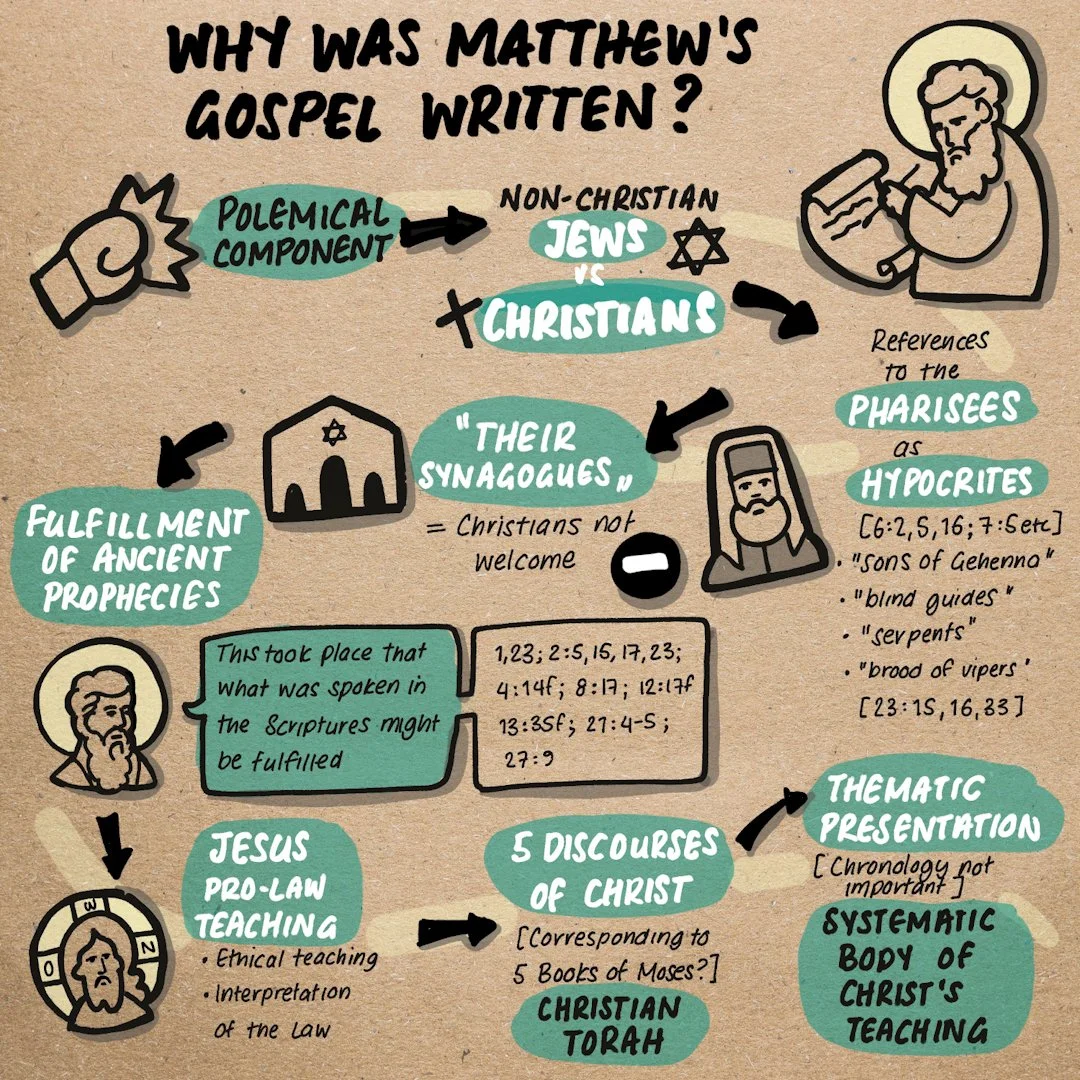 WHY WAS MATTHEW'S
GOSPEL WRITTEN?
POLEMICAL
COMPONENT
NON-CHRISTIAN
JEWS
VS
CHRISTIANS
References
to the
PHARISEES
as
HYPOCRITES
[6:2,5,16; 7:5 etc]
• "sons of Gehenna"
• "blind guides"
• "serpents"
• "brood of vipers'
[23:15,16,33]
"THEIR
SYNAGOGUES„
= Christians not
welcome
FULFILLMENT
OF ANCIENT
PROPHECIES
This took place that
what was spoken in
the Scriptures might
be fulfilled
1,23; 2:5,15,17,23;
4:14f; 8:17; 12:17f
13:35f; 21:4-5;
27:9
JESUS
PRO-LAW
TEACHING
• Ethical teaching
• Interpretation
of the Law
O W N
5 DISCOURSES
OF CHRIST
[Corresponding to
5 Books of Moses?]
CHRISTIAN
TORAH
THEMATIC
PRESENTATION
[Chronology not
important]
SYSTEMATIC
BODY OF
CHRIST'S
TEACHING